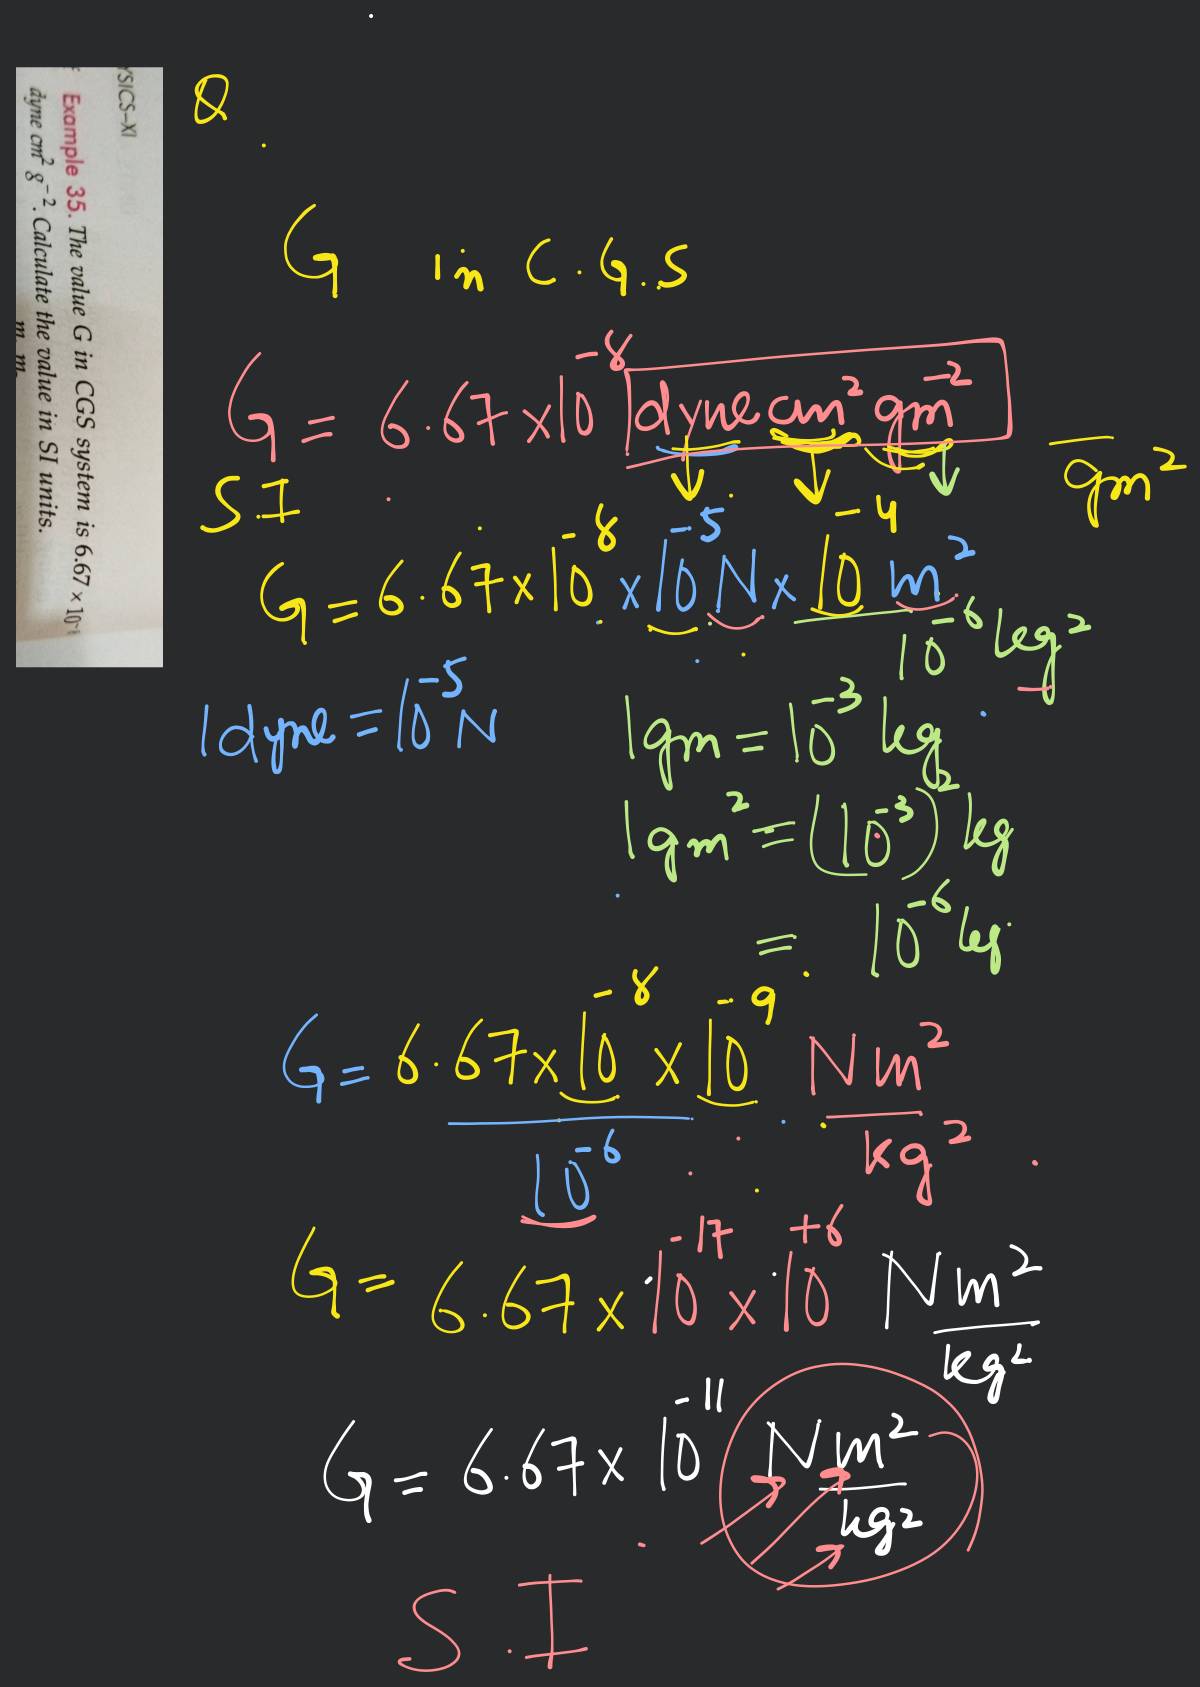 YSICS–XI
Example 35. The value G in CGS system is 6.67 × 10⁻⁸
dyne cm² g⁻². Calculate the value in SI units.
Q
G in C.G.S
G = 6.67 × 10⁻⁸ dyne cm² gm⁻²
gm²
SI
G = 6.67 × 10⁻⁸ × 10⁻⁵ N × 10⁻⁴ m²
10⁻⁶ kg²
1 dyne = 10⁻⁵ N
1 gm = 10⁻³ kg
1 gm² = (10⁻³)² kg
= 10⁻⁶ kg
G = 6.67 × 10⁻⁸ × 10⁻⁹ Nm²
10⁻⁶ kg²
G = 6.67 × 10⁻¹⁷ × 10⁺⁶ Nm²
kg²
G = 6.67 × 10⁻¹¹ Nm²
kg²
S.I